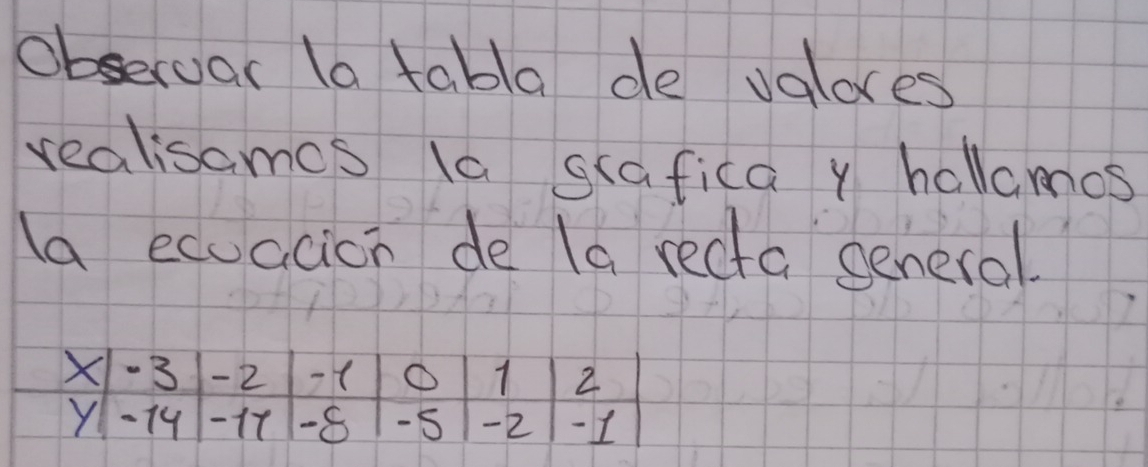 Observar la tabla de valores
realisamos la grafica y hallamos
la ecuación de la recta general.
X | -3 | -2 | -1 | 0 | 1 | 2 |
Y | -14 | -11 | -8 | -5 | -2 | -1 |